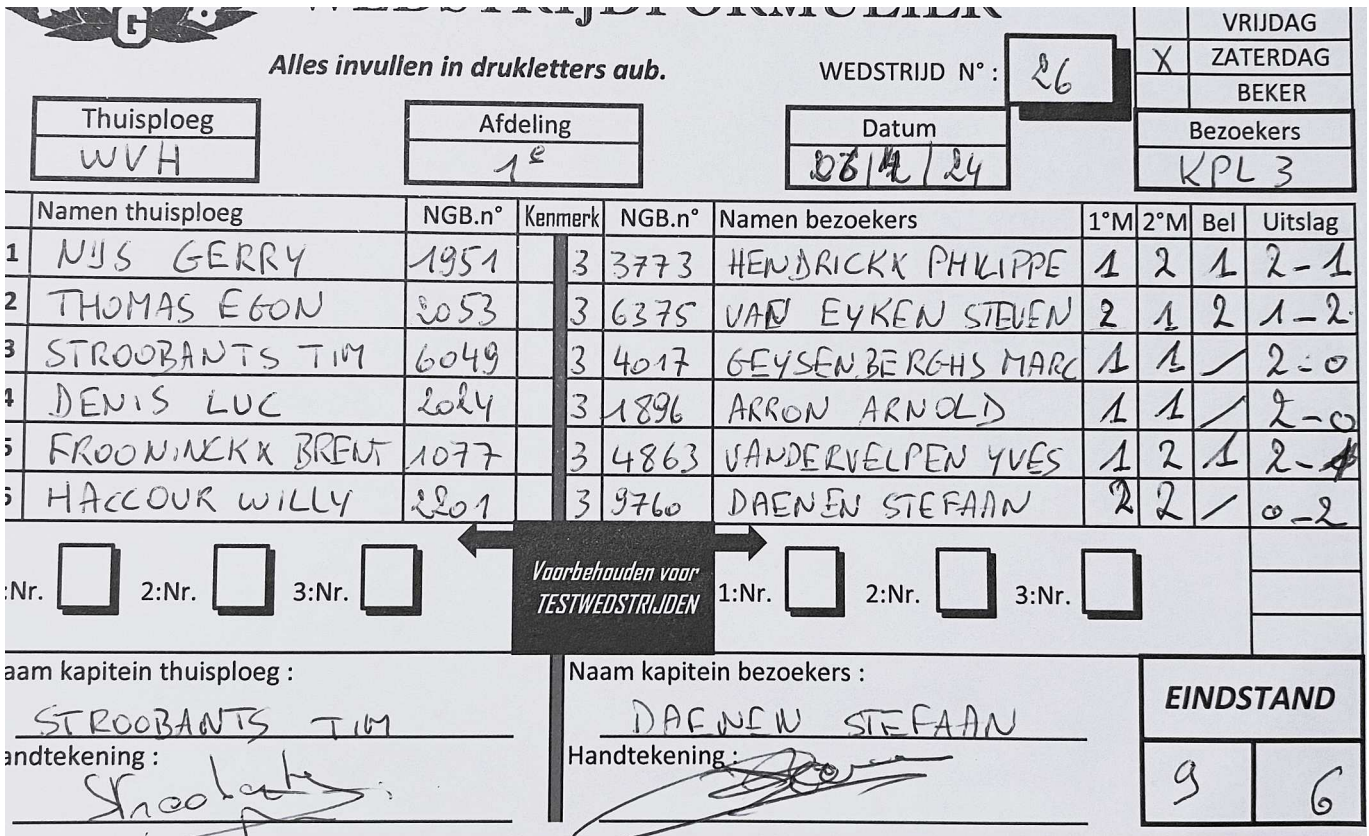 G
WEDSTRIJDFORMULIER
VRIJDAG
Alles invullen in drukletters aub.
WEDSTRIJD N° : 26
X ZATERDAG
BEKER
Thuisploeg
Afdeling
Datum
Bezoekers
WVH
1e
/24
KPL 3
Namen thuisploeg NGB.n° Kenmerk NGB.n° Namen bezoekers 1°M 2°M Bel Uitslag
1 NIJS GERRY 1951 3 3773 HENDRICKX PHILIPPE 1 2 1 2-1
2 THOMAS EGON 2053 3 6375 VAN EYKEN STEVEN 2 1 2 1-2
3 STROOBANTS TIM 6049 3 4017 GEYSENBERGHS MARC 1 1 / 2-0
4 DENIS LUC 2024 3 1896 ARRON ARNOLD 1 1 / 2-0
5 FROONINCKX BRENT 1077 3 4863 VANDERVELPEN YVES 1 2 1 2-1
6 HACCOUR WILLY 2201 3 9760 DAENEN STEFAAN 2 2 / 0-2
:Nr. 2:Nr. 3:Nr.
Voorbehouden voor
TESTWEDSTRIJDEN
1:Nr. 2:Nr. 3:Nr.
aam kapitein thuisploeg :
Naam kapitein bezoekers :
EINDSTAND
STROOBANTS TIM
DAENEN STEFAAN
andtekening :
Handtekening :
9 6
Stroobants